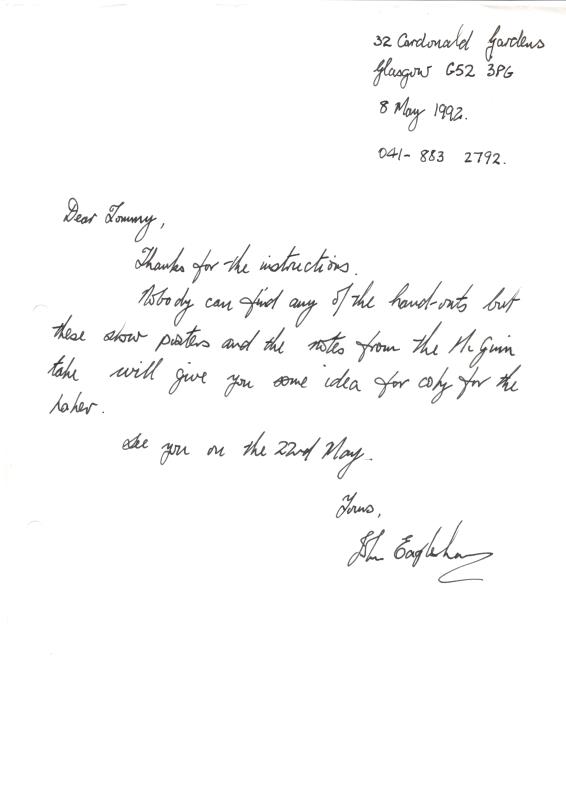 32 Cardonald Gardens
Glasgow G52 3PG
8 May 1992.
041- 883 2792.
Dear Tommy,
Thanks for the instructions.
Nobody can find any of the hand-outs but
these show posters and the notes from the McGinn
tape will give you some idea for copy for the
paper.
See you on the 22nd May.
Yours,
John Eaglesham